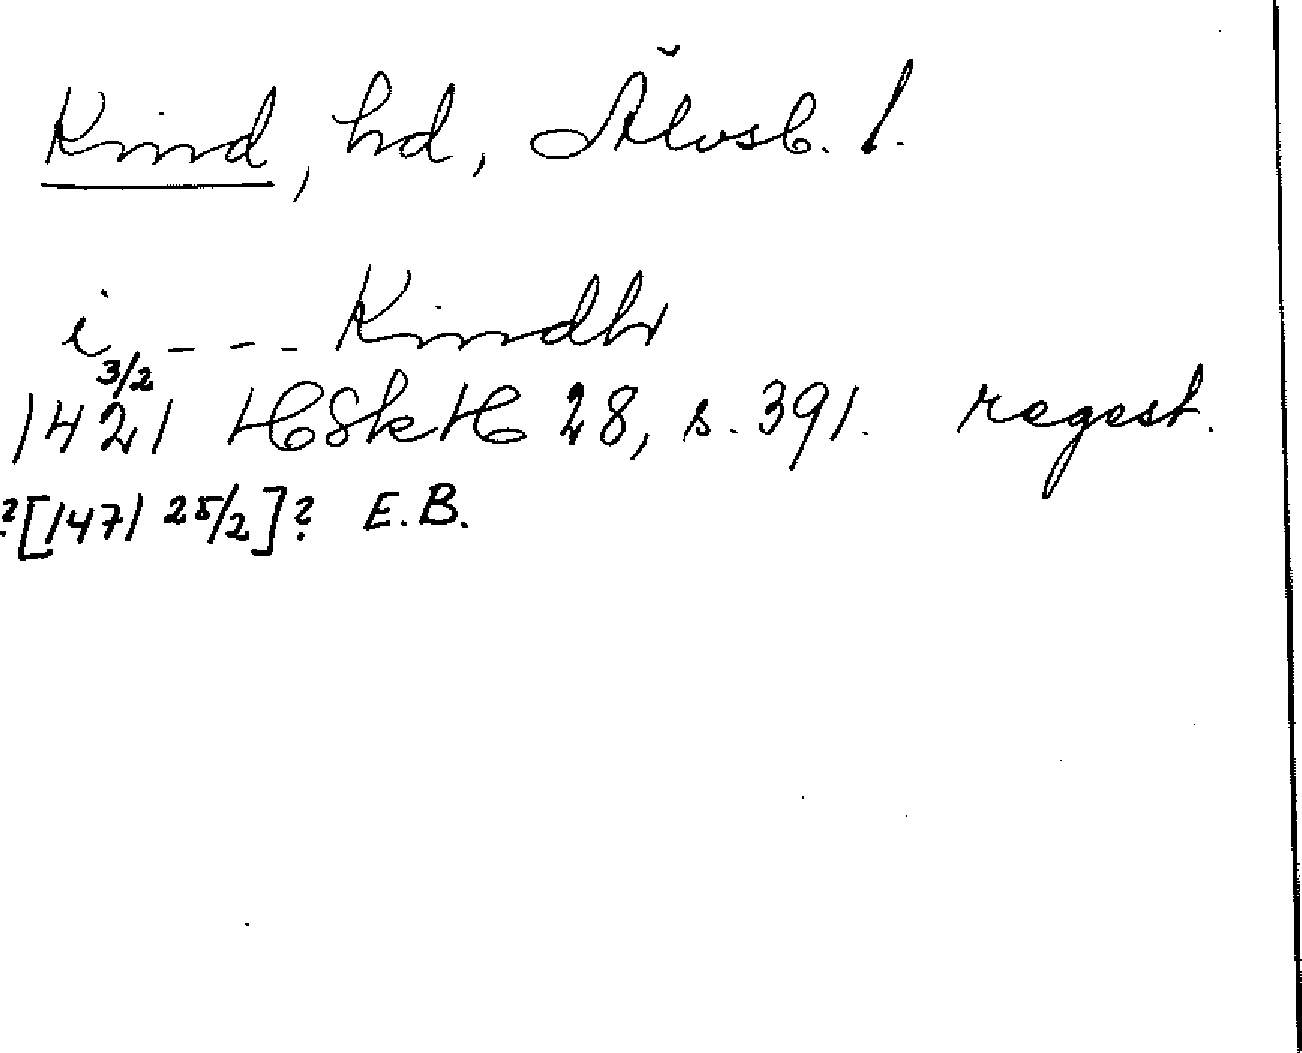 Kind, hd, Älvsb. l.
i - - - Kindh
3/2
1421 HSkH 28, s. 391. regest.
?[1471 25/2]? E.B.